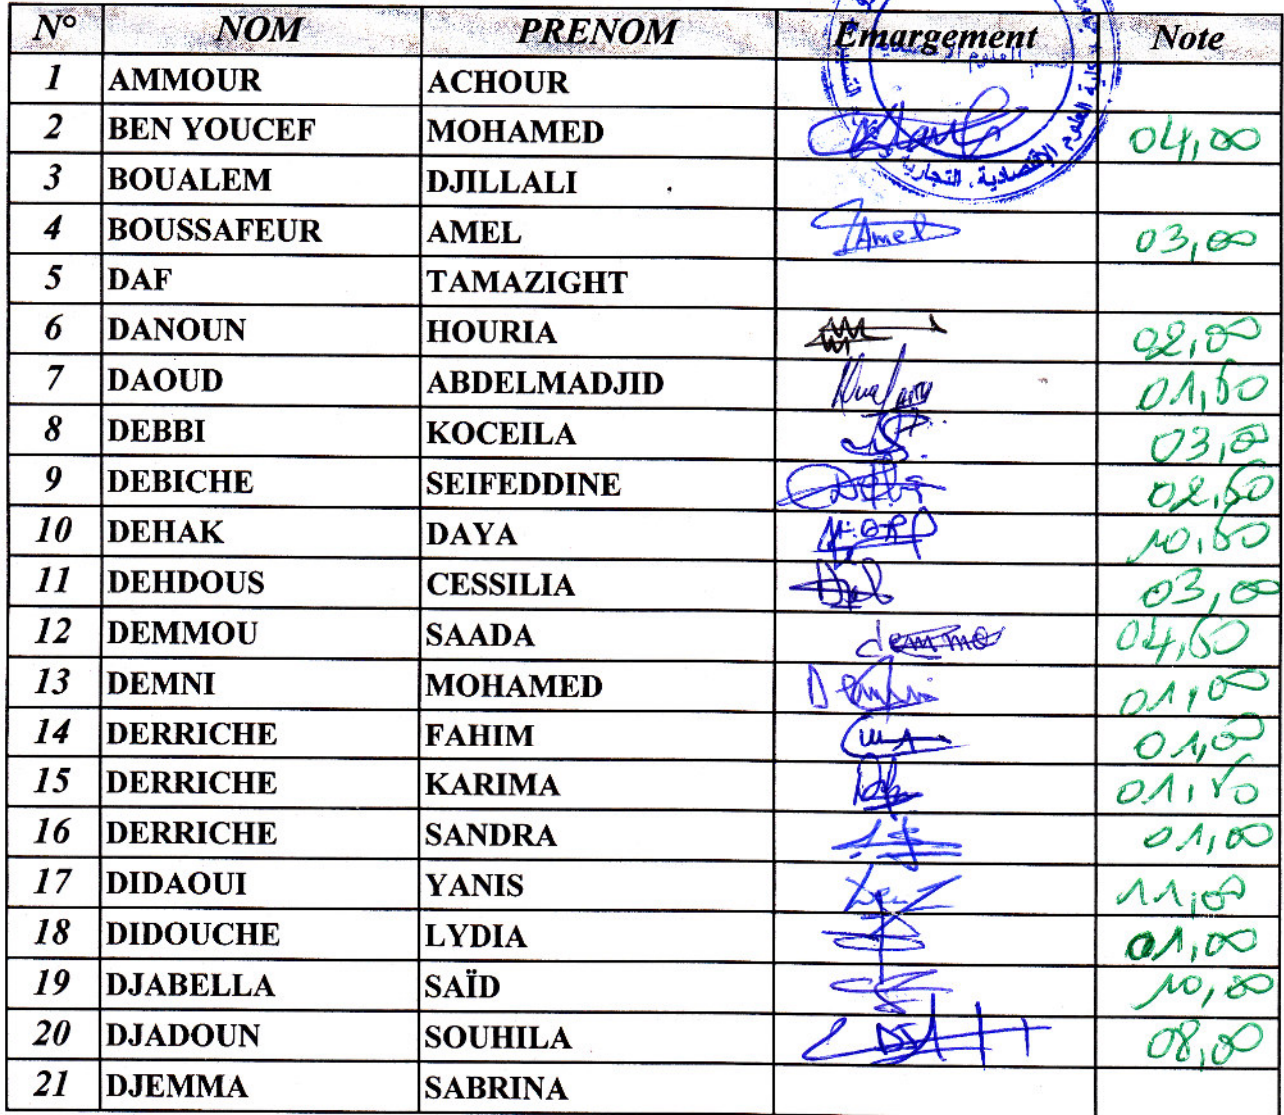 N° NOM PRENOM Emargement Note
1 AMMOUR ACHOUR
2 BEN YOUCEF MOHAMED 04,00
3 BOUALEM DJILLALI
4 BOUSSAFEUR AMEL Amel 03,00
5 DAF TAMAZIGHT
6 DANOUN HOURIA 02,00
7 DAOUD ABDELMADJID 01,50
8 DEBBI KOCEILA 03,00
9 DEBICHE SEIFEDDINE 02,50
10 DEHAK DAYA 10,50
11 DEHDOUS CESSILIA 03,00
12 DEMMOU SAADA 04,50
13 DEMNI MOHAMED 01,00
14 DERRICHE FAHIM 01,00
15 DERRICHE KARIMA 01,50
16 DERRICHE SANDRA 01,00
17 DIDAOUI YANIS 11,00
18 DIDOUCHE LYDIA 01,00
19 DJABELLA SAÏD 10,00
20 DJADOUN SOUHILA 08,00
21 DJEMMA SABRINA
كلية العلوم الاقتصادية، التجارية